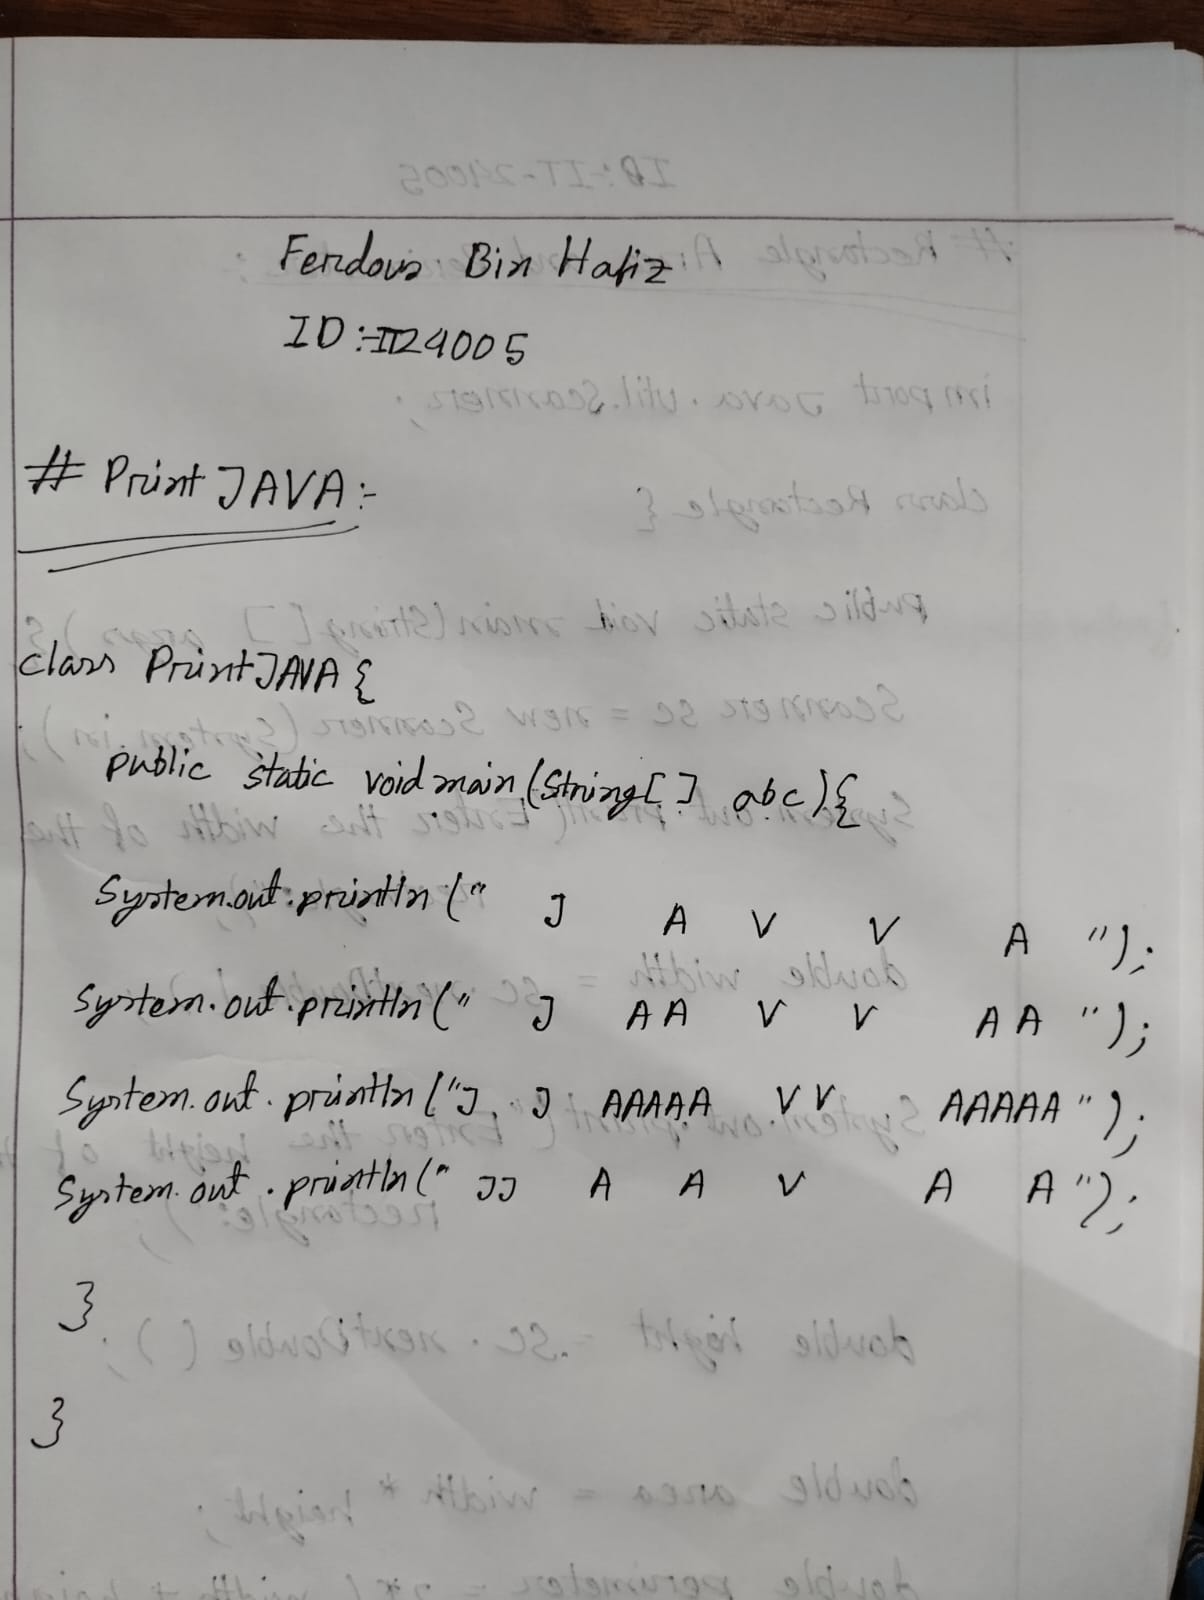 Ferdous Bin Hafiz
ID:-IT24005
# Print JAVA:-
class PrintJAVA {
public static void main(String[] abc){
System.out.println("   J    A  V    V    A  ");
System.out.println("   J   AA   V   V    AA ");
System.out.println("J  J  AAAAA   VV   AAAAA");
System.out.println(" JJ   A   A   V    A   A");
}
}